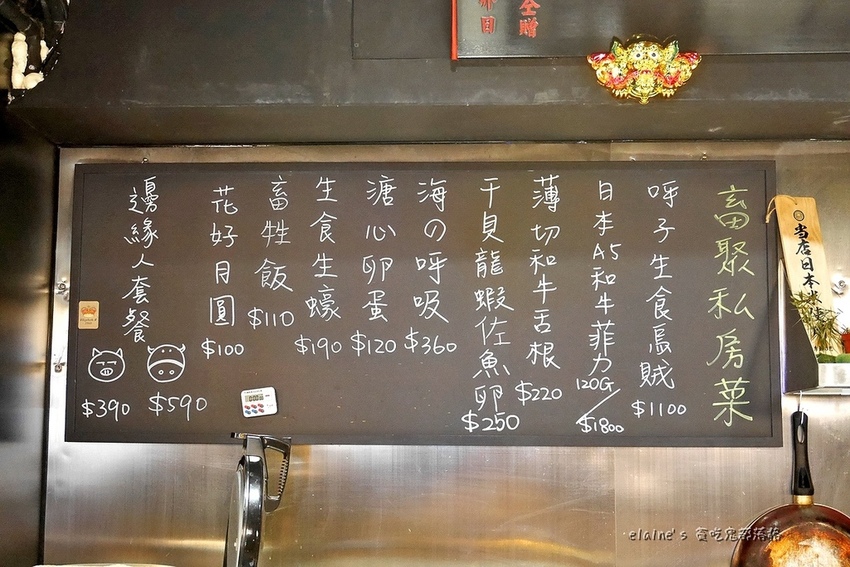 全贈
畜聚私房菜
呼子生食烏賊
$1100
日本A5和牛菲力
120G/$1800
薄切和牛舌根
$220
干貝龍蝦佐魚卵
$250
海の呼吸
$360
溏心卵蛋
$120
生食生蠔
$190
畜牲飯
$110
花好月圓
$100
邊緣人套餐
$390
$590
当店日本
elaine's 貪吃鬼部落格